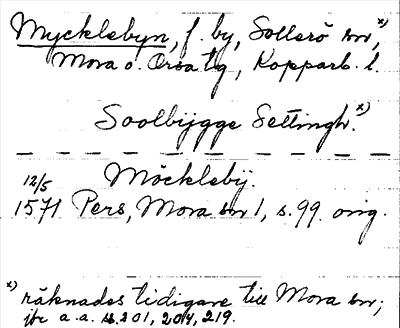 Mycklebyn, f. by, Sollerö sn x),
Mora o. Orsa tg, Kopparb. l.
Soolbijgge Settingh. x)
Möckleby.
12/5
1571 Pers, Mora sn 1, s. 99. orig.
x) räknades tidigare till Mora sn;
jfr a. a. ss. 201, 204, 219.